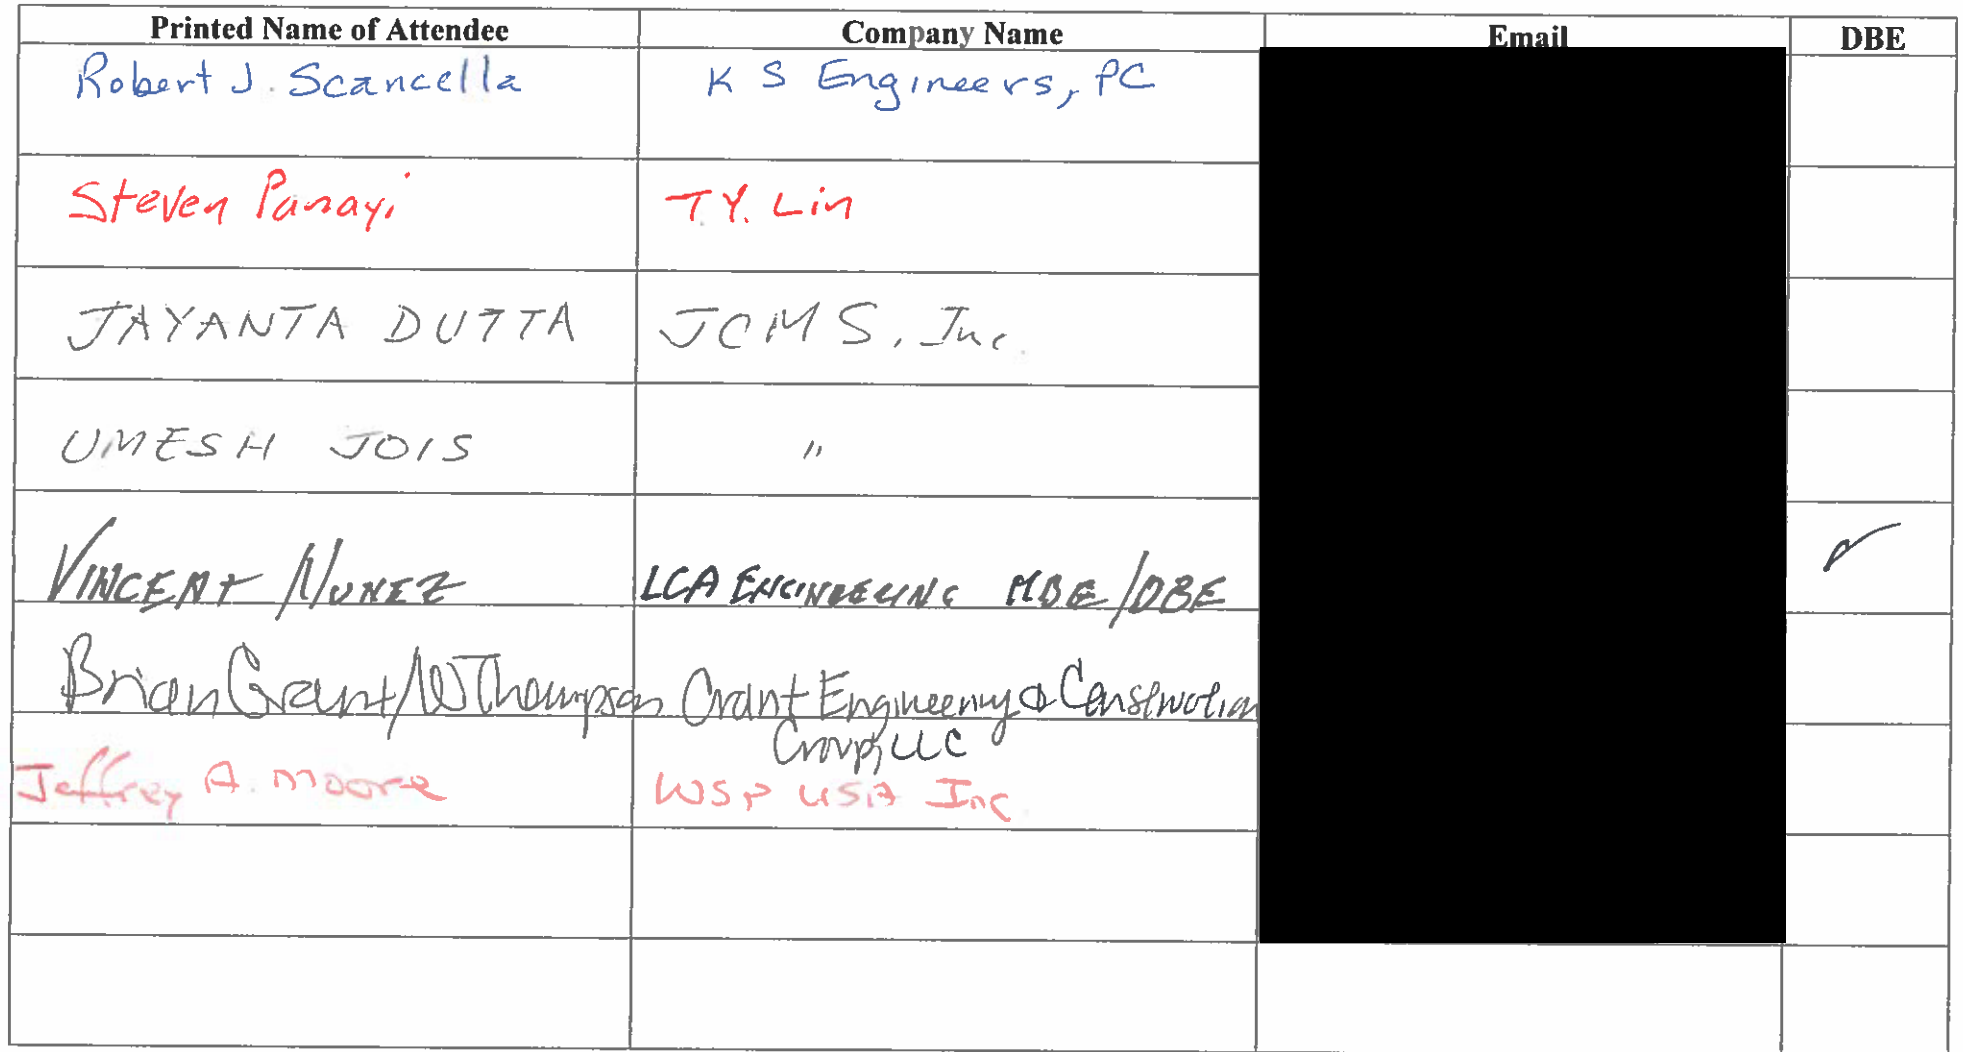 Printed Name of Attendee Company Name Email DBE
Robert J. Scancella K S Engineers, PC
Steven Panayi T.Y. Lin
JAYANTA DUTTA JCMS, Inc.
UMESH JOIS "
VINCENT NUNEZ LCA ENGINEERING MBE/DBE ✓
Brian Grant/W Thompson Grant Engineering & Construction
Group, LLC
Jeffrey A. Moore WSP USA Inc